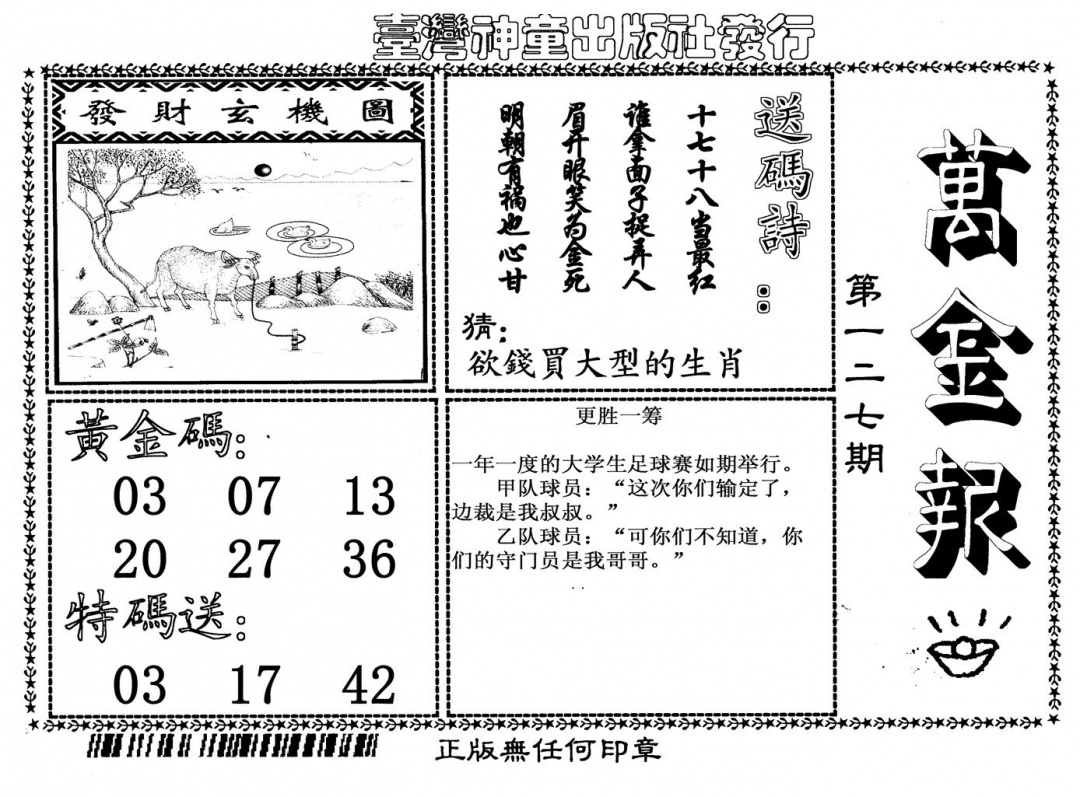 臺灣神童出版社發行
萬金報
第一二七期
發財玄機圖
送碼詩：
十七十八当最红
谁拿面子捉弄人
眉开眼笑为金死
明朝有祸也心甘
猜：
欲錢買大型的生肖
黃金碼：
03 07 13
20 27 36
特碼送：
03 17 42
更胜一筹
一年一度的大学生足球赛如期举行。
甲队球员：“这次你们输定了，
边裁是我叔叔。”
乙队球员：“可你们不知道，你
们的守门员是我哥哥。”
正版無任何印章